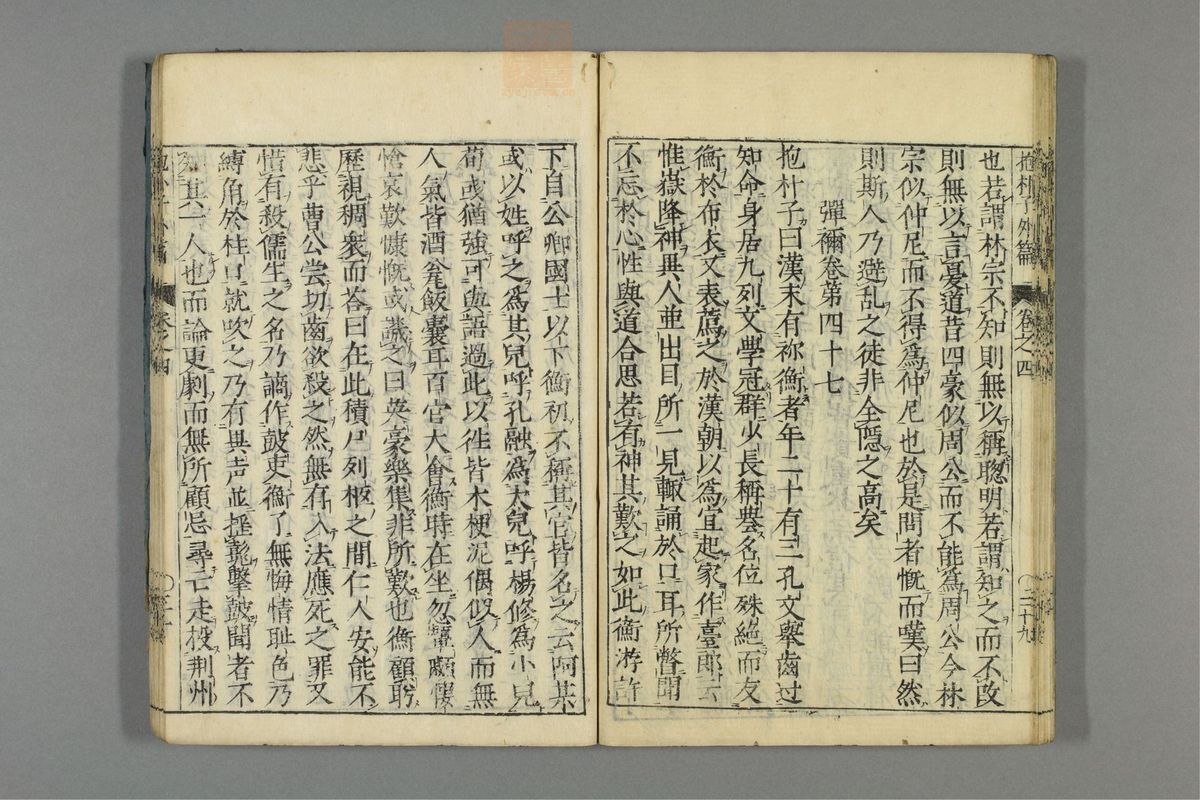 抱朴子外篇 卷之四 ○三十九
也若謂林宗不知則無以稱聰明若謂知之而不改
則無以言憂道昔四豪似周公而不能為周公今林
宗似仲尼而不得為仲尼也於是問者慨而嘆曰然
則斯人乃避乱之徒非全隱之高矣
彈禰卷第四十七
抱朴子曰漢末有祢衡者年二十有三孔文舉齒过
知命身居九列文學冠群少長稱譽名位殊絕而友
衡於布衣又表薦之於漢朝以為宜起家作臺郎云
惟嶽降神異人並出目所一見輙誦於口耳所瞥聞
不忘於心性與道合思若有神其歎之如此衡游許
下自公卿國士以下衡初不稱其官皆名之云阿某
或以姓呼之為某兒呼孔融為大兒呼楊修為小兒
荀彧猶強可與語過此以徃皆木梗泥偶似人而無
人氣皆酒瓮飯囊耳百官大會衡時在坐忽顰顣悽
愴哀歎慷慨或譏之曰英豪樂集非所歎也衡顧眄
歷視稠衆而荅曰在此積尸列柩之間仁人安能不
悲乎曹公嘗切齒欲殺之然無有入法應死之罪又
惜有殺儒生之名乃謫作鼓吏衡了無悔情耻色乃
縛角於柱口就吹之乃有異声並摇鼗擊鼓聞者不
知其一人也而論更劇而無所顧忌尋亡走投荆州